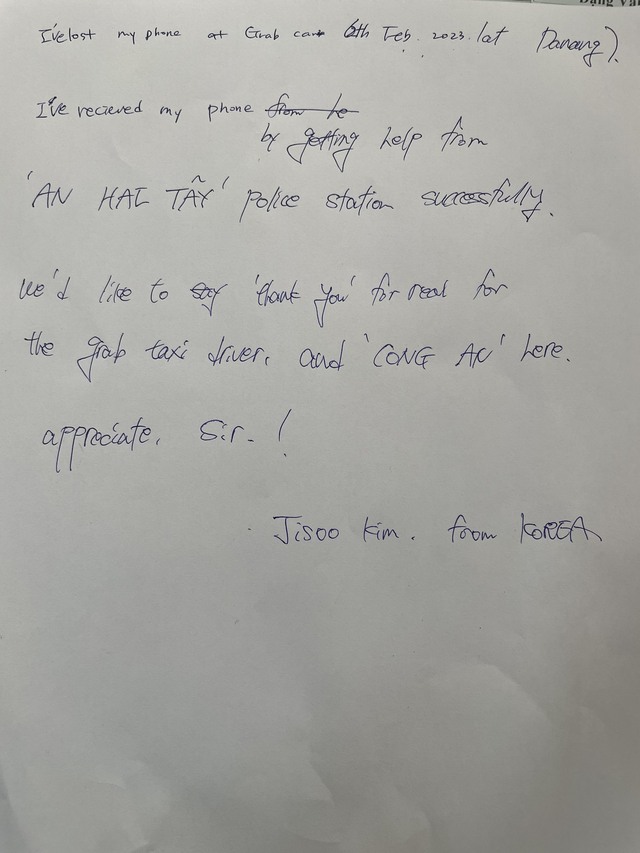 I've lost my phone at Grab car 6th Feb. 2023. (at Danang).
I've recieved my phone from he
by getting help from
'AN HAI TÂY' police station successfully.
We'd like to say 'thank you' for real for
the grab taxi driver, and 'CONG AN' here.
appreciate, Sir. !
Jisoo Kim. from KOREA